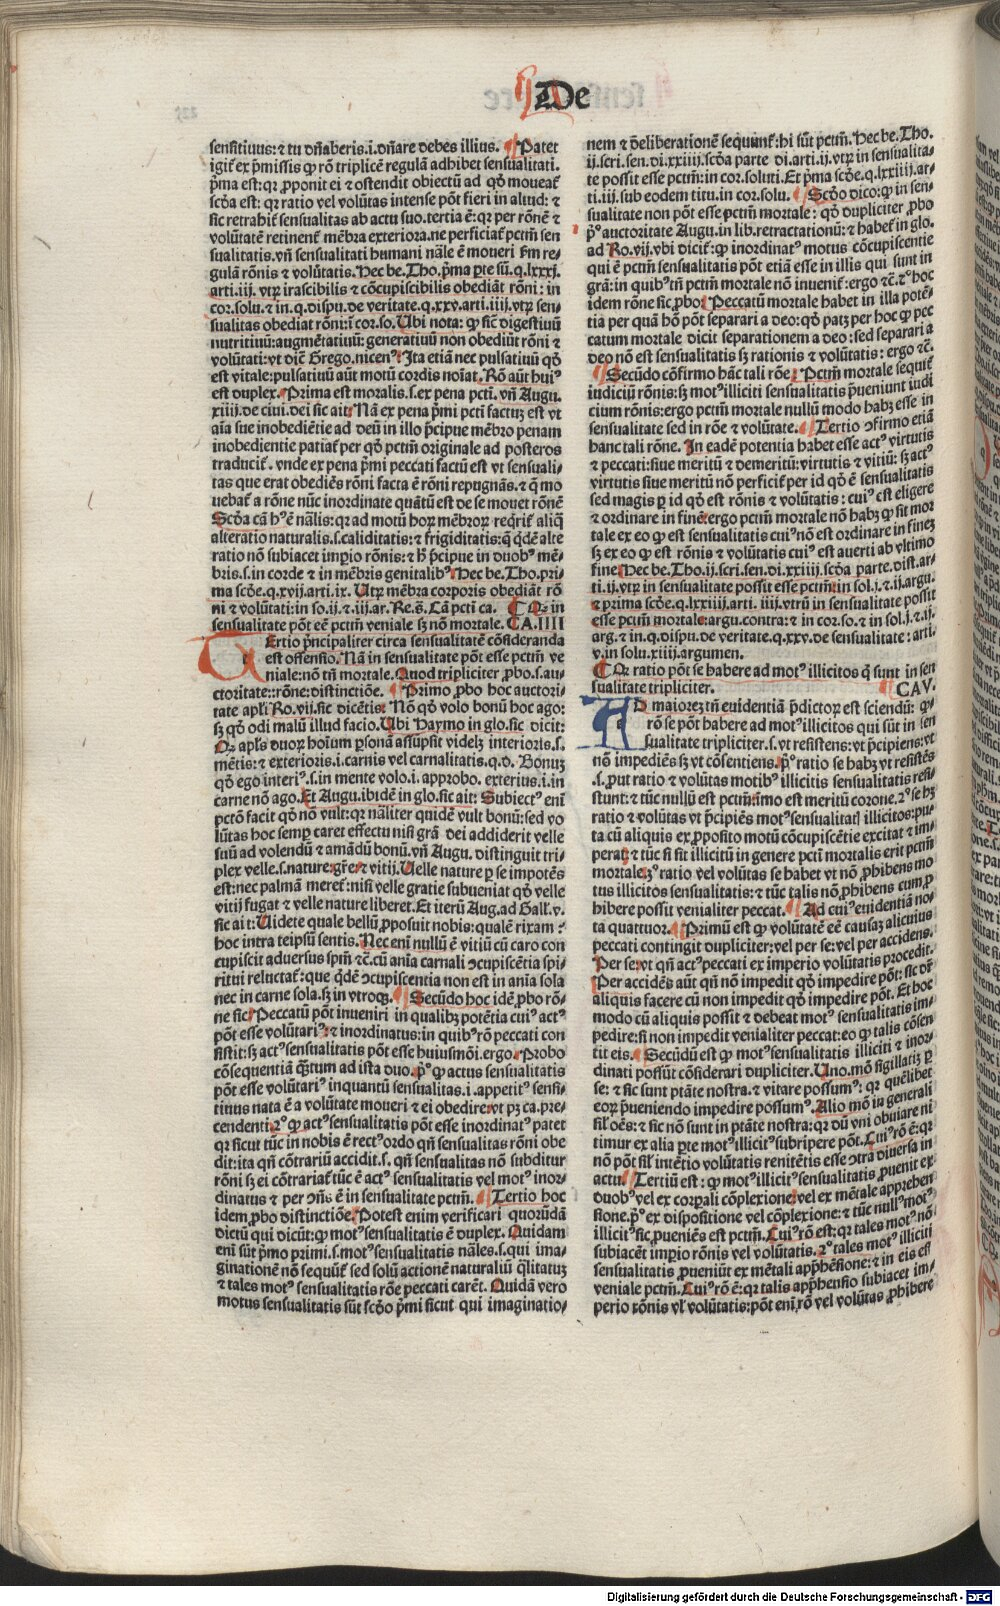 De
sensitiuus: ⁊ tu dn̄aberis .i. dn̄are debes illius. Patet
igit̄ ex p̄missis ꝙ rō triplicē regulā adhibet sensualitati.
p̄ma est: qꝛ ꝓponit ei ⁊ ostendit obiectū ad qđ moueat̄
scđa est: qꝛ ratio vel volūtas intense pōt fieri in aliud: ⁊
sic retrahit̄ sensualitas ab actu suo. tertia ē: qꝛ per rōnē ⁊
volūtatē retinent̄ mēbra exteriora. ne perficiat̄ pctm̄ sen
sualitatis. vn̄ sensualitati humani nāle ē moueri ẜm re⸗
gulā rōnis ⁊ volūtatis. Hec be. Tho. p̄ma ꝑte sū. q. lxxxj.
arti. iij. vtꝝ irascibilis ⁊ cōcupiscibilis obediāt rōni: in
cor. solu. ⁊ in. q. dispu. de veritate. q. xxv. arti. iiij. vtꝝ sen⸗
sualitas obediat rōni: ī cor. so. Ubi nota: ꝙ sic̄ digestiuū
nutritiuū: augmētatiuū: generatiuū non obediūt rōni ⁊
volūtati: vt dic̄ Grego. nicen⁹. Ita etiā nec pulsatiuū qđ
est vitale: pulsatiuū aūt motū cordis noīat. Rō aūt hui⁹
est duplex. Prima est moralis. s. ex pena pcti. vn̄ Augu.
xiiij. de ciui. dei sic ait. Nā ex pena p̄mi pcti factuꝫ est vt
aīa sue inobediētie ad deū in illo p̄cipue mēbro penam
inobedientie patiat̄ per qđ pctm̄ originale ad posteros
traducit̄. vnde ex pena p̄mi peccati factū est vt sensuali⸗
tas que erat obediēs rōni facta ē rōni repugnās. ⁊ q̄ mo
uebat̄ a rōne nūc inordinate quātū est de se mouet rōnē
Scđa cā h⁹ ē nālis: qꝛ ad motū hoꝝ mēbroꝝ reqrit̄ aliq̄
alteratio naturalis. s. caliditatis: ⁊ frigiditatis: q̄ qdē alte
ratio nō subiacet impio rōnis: ⁊ h̄ p̄cipue in duob⁹ mē⸗
bris. s. in corde ⁊ in mēbris genitalib⁹. Hec be. Tho. pri⸗
ma scđe. q. xvij. arti. ix. Utꝝ mēbra corporis obediāt rō
ni ⁊ volūtati: in so. ij. ⁊ .iij. ar. Re. s̄. Cā pcti ca. Qꝛ in
sensualitate pōt eē pctm̄ veniale sꝫ nō mortale. CA. IIII
Tertio p̄ncipaliter circa sensualitatē cōsideranda
est offensio. Nā in sensualitate pōt esse pctm̄ ve
niale: nō tn̄ mortale. Quod tripliciter ꝓbo. s. au⸗
ctoritate: rōne: distinctiōe. Primo ꝓbo hoc auctori⸗
tate apli Ro. vij. sic dicētis. Nō qđ volo bonū hoc ago:
sꝫ qđ odi malū illud facio. Ubi Haymo in glo. sic dicit:
Qꝛ apl̄s duoꝝ hoīum ꝑsonā assūpsit videlꝫ interioris. s.
mētis: ⁊ exterioris. i. carnis vel carnalitatis. q. d. Bonuꝫ
qđ ego interi⁹. s. in mente volo. i. approbo. exterius. i. in
carne nō ago. Et Augu. ibidē in glo. sic ait: Subiect⁹ enī
pctō facit qđ nō vult: qꝛ nāliter quidē vult bonū: sed vo
lūtas hoc semꝑ caret effectu nisi grā dei addiderit velle
suū ad volendū ⁊ amādū bonū. vn̄ Augu. distinguit tri⸗
plex velle. s. nature: gr̄e: ⁊ vitij. Uelle nature ꝑ se impotēs
est: nec palmā meret̄: nisi velle gratie subueniat qđ velle
vitij fugat ⁊ velle nature liberet. Et iterū Aug. ad Gall̄. v.
sic ait: Uidete quale bellū ꝓposuit nobis: qualē rixam:
hoc intra teipsū sentis. Nec enī nullū ē vitiū cū caro con
cupiscit aduersus spm̄ ⁊c̄. cū anīa carnali ꝯcupiscētia spi⸗
ritui reluctat̄: que qdē ꝯcupiscentia non est in anīa sola
nec in carne sola. sꝫ in vtroqꝫ. Secūdo hoc idē ꝓbo rō⸗
ne sic. Peccatū pōt inueniri in qualibꝫ potētia cui⁹ act⁹
pōt esse volūtari⁹: ⁊ inordinatus: in quib⁹ rō peccati con
sistit: sꝫ act⁹ sensualitatis pōt esse huiusmōi. ergo. Probo
cōsequentiā qꝫtum ad ista duo. p⁹ ꝙ actus sensualitatis
pōt esse volūtari⁹ inquantū sensualitas. i. appetit⁹ sensi⸗
tiuus nata ē a volūtate moueri ⁊ ei obedire: vt pꝫ ca. pre⸗
cedenti. 2⁹ ꝙ act⁹ sensualitatis pōt esse inordinat⁹ patet
qꝛ sicut tūc in nobis ē rect⁹ ordo qn̄ sensualitas rōni obe
dit: ita qn̄ cōtrariū accidit. s. qn̄ sensualitas nō subditur
rōni sꝫ ei cōtrariat̄ tūc ē act⁹ sensualitatis vel mot⁹ inor⸗
dinatus ⁊ per ꝯn̄s ē in sensualitate pctm̄. Tertio hoc
idem ꝓbo distinctiōe. Potest enim verificari quorūdā
dictū qui dicūt: ꝙ mot⁹ sensualitatis ē duplex. Quidam
enī sūt p̄mo primi. s. mot⁹ sensualitatis nāles. s. qui ima⸗
ginationē nō sequūt̄ sed solū actionē naturaliū q̄litatuꝫ
⁊ tales mot⁹ sensualitatis rōe peccati carēt. Quidā vero
motus sensualitatis sūt scđo p̄mi sicut qui imaginatio⸗
nem ⁊ deliberationē sequunt̄: hi sūt pctm̄. Hec be. Tho.
ij. scri. sen. di. xxiiij. scđa parte di. arti. ij. vtꝝ in sensualita⸗
te possit esse pctm̄: in cor. soluti. Et p̄ma scđe. q. lxxiiij. ar⸗
ti. iij. sub eodem titu. in cor. solu. Scđo dico: ꝙ in sen⸗
sualitate non pōt esse pctm̄ mortale: qđ dupliciter ꝓbo
p⁹ auctoritate Augu. in lib. retractationū: ⁊ habet̄ in glo.
ad Ro. vij. vbi dicit̄: ꝙ inordinat⁹ motus cōcupiscentie
qui ē pctm̄ sensualitatis pōt etiā esse in illis qui sunt in
grā: in quib⁹ tn̄ pctm̄ mortale nō inuenit̄: ergo ⁊c̄. 2⁹ hoc
idem rōne sic ꝓbo. Peccatū mortale habet in illa potē⸗
tia per quā hō pōt separari a deo: qđ patꝫ per hoc ꝙ pec
catum mortale dicit separationem a deo: sed separari a
deo nō est sensualitatis sꝫ rationis ⁊ volūtatis: ergo ⁊c̄.
Secūdo cōfirmo hāc tali rōe. Pctm̄ mortale sequit̄
iudiciū rōnis: sꝫ mot⁹ illiciti sensualitatis p̄ueniunt iudi
cium rōnis: ergo pctm̄ mortale nullū modo habꝫ esse in
sensualitate sed in rōe ⁊ volūtate. Tertio ꝯfirmo etiā
hanc tali rōne. In eadē potentia habet esse act⁹ virtutis
⁊ peccati: siue meritū ⁊ demeritū: virtutis ⁊ vitiū: sꝫ act⁹
virtutis siue meritū nō perficit̄ per id qđ ē sensualitatis
sed magis ꝑ id qđ est rōnis ⁊ volūtatis: cui⁹ est eligere
⁊ ordinare in finē: ergo pctm̄ mortale nō habꝫ ꝙ sit mor
tale ex eo ꝙ est sensualitatis cui⁹ nō est ordinare in fineꝫ
sꝫ ex eo ꝙ est rōnis ⁊ volūtatis cui⁹ est auerti ab vltimo
fine. Hec be. Tho. ij. scri. sen. di. xxiiij. scđa parte. dist. ar⸗
ti. ij. vtꝝ in sensualitate possit esse pctm̄: in sol. j. ⁊ .ij. argu.
⁊ prima scđe. q. lxxiiij. arti. iiij. vtrū in sensualitate possit
esse pctm̄ mortale: argu. contra: ⁊ in cor. so. ⁊ in sol. j. ⁊ .ij.
arg. ⁊ in. q. dispu. de veritate. q. xxv. de sensualitate: arti.
v. in solu. xiij. argumen.
Qꝛ ratio pōt se habere ad mot⁹ illicitos q̄ sunt in sen
sualitate tripliciter. CA V.
AD maioreꝫ tn̄ euidentiā p̄dictoꝝ est sciendū: ꝙ
rō se pōt habere ad mot⁹ illicitos qui sūt in sen
sualitate tripliciter. s. vt resistens: vt p̄cipiens: vt
nō impediēs sꝫ vt cōsentiens. p⁹ ratio se habꝫ vt resistēs
.s. ꝓut ratio ⁊ volūtas motib⁹ illicitis sensualitatis resi⸗
stunt: ⁊ tūc nullū est pctm̄: imo est meritū corone. 2⁹ se hꝫ
ratio ⁊ volūtas vt p̄cipiēs mot⁹ sensualitatꝭ illicitos: pu⸗
ta cū aliquis ex ꝓposito motū cōcupiscētie excitat ⁊ im⸗
perat: ⁊ tūc si sit illicitū in genere pcti mortalis erit pctm̄
mortale. 3⁹ ratio vel volūtas se habet vt nō ꝓhibens mo
tus illicitos sensualitatis: ⁊ tūc talis nō ꝓhibens cum ꝓ
hibere possit venialiter peccat. Ad cui⁹ euidentiā no⸗
ta quattuor. Primū est ꝙ volūtatē eē causaꝫ alicuius
peccati contingit dupliciter: vel per se: vel per accidens.
Per se: vt qn̄ act⁹ peccati ex imperio volūtatis procedit.
Per accidēs aūt qn̄ nō impedit qđ impedire pōt: sic dr̄
aliquis facere cū non impedit qđ impedire pōt. Et hoc
modo cū aliquis possit ⁊ debeat mot⁹ sensualitatis im⸗
pedire: si non impedit venialiter peccat: eo ꝙ talis cōsen
tit eis. Secūdū est ꝙ mot⁹ sensualitatis illiciti ⁊ inor⸗
dinati possūt cōsiderari dupliciter. Uno. mō sigillatiꝫ ꝑ
se: ⁊ sic sunt ptāte nostra. ⁊ vitare possum⁹: qꝛ quēlibet
eoꝝ p̄ueniendo impedire possum⁹. Alio mō in generali
sil̄ oēs: ⁊ sic nō sunt in ptāte nostra: qꝛ dū vni obuiare ni
timur ex alia ꝑte mot⁹ illicit⁹ subripere pōt. Cui⁹ rō ē: qꝛ
nō pōt sil̄ intētio volūtatis renitētis esse ꝯtra diuersa in
actu. Tertiū est: ꝙ mot⁹ illicit⁹ sensualitatis ꝓuenit ex
duob⁹ vel ex corꝑali cōplexione: vel ex mētale apprehen
sione. p⁹ ex dispositione vel cōplexione: ⁊ tūc null⁹ mot⁹
illicit⁹ sic ꝓueniēs est pctm̄. Cui⁹ rō est: qꝛ tales mot⁹ nō
subiacēt impio rōnis vel volūtatis. 2⁹ tales mot⁹ illiciti
sensualitatis ꝓueniūt ex mētali app̄hēsione: ⁊ in eis est
veniale pctm̄. Cui⁹ rō ē: qꝛ talis app̄hensio subiacet im⸗
perio rōnis vl̄ volūtatis: pōt enī rō vel volūtas ꝓhibere
Digitalisierung gefördert durch die Deutsche Forschungsgemeinschaft - DFG